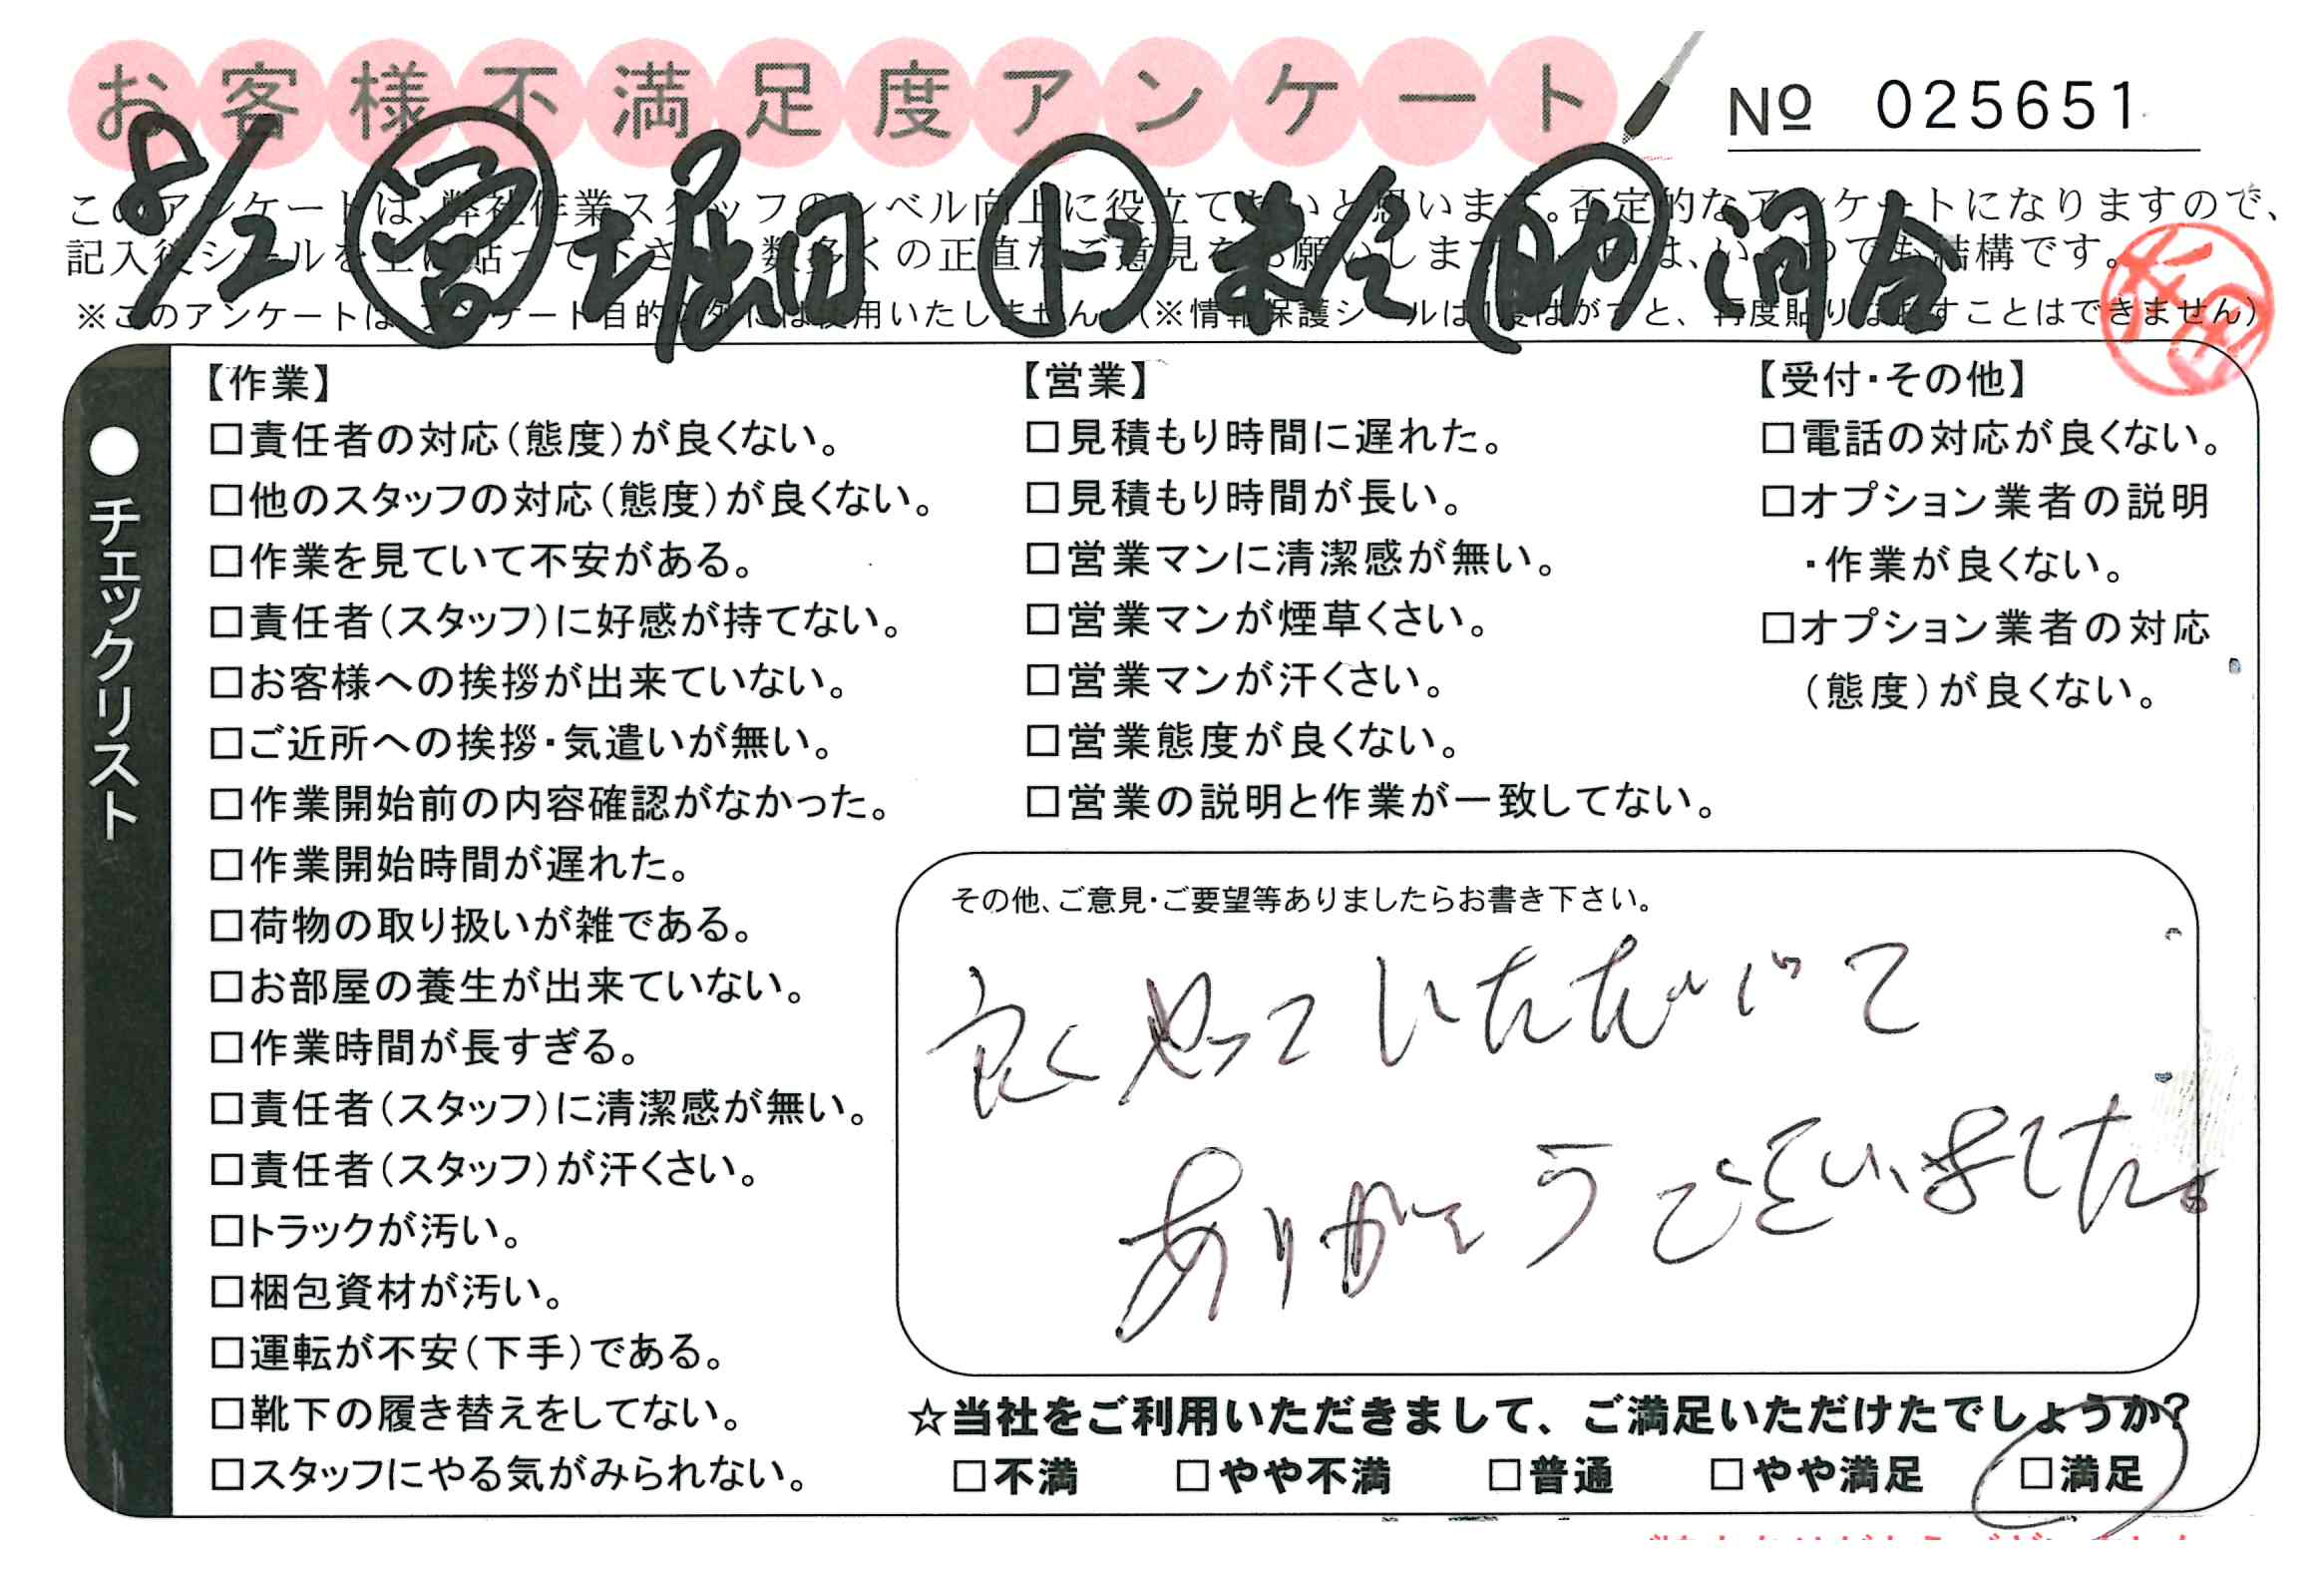 お客様不満足度アンケート
№ 025651
8/2 営 堀田 ド 助 河合
このアンケートは、弊社作業スタッフのレベル向上に役立てたいと思います。否定的なアンケートになりますので、
記入後シールを上に貼って下さい。数多くの正直なご意見をお願いします。
※このアンケートは、アンケート目的以外には使用いたしません。(※情報保護シールは1度はがすと、再度貼りなおすことはできません)
●チェックリスト
【作業】
□責任者の対応(態度)が良くない。
□他のスタッフの対応(態度)が良くない。
□作業を見ていて不安がある。
□責任者(スタッフ)に好感が持てない。
□お客様への挨拶が出来ていない。
□ご近所への挨拶・気遣いが無い。
□作業開始前の内容確認がなかった。
□作業開始時間が遅れた。
□荷物の取り扱いが雑である。
□お部屋の養生が出来ていない。
□作業時間が長すぎる。
□責任者(スタッフ)に清潔感が無い。
□責任者(スタッフ)が汗くさい。
□トラックが汚い。
□梱包資材が汚い。
□運転が不安(下手)である。
□靴下の履き替えをしてない。
□スタッフにやる気がみられない。
【営業】
□見積もり時間に遅れた。
□見積もり時間が長い。
□営業マンに清潔感が無い。
□営業マンが煙草くさい。
□営業マンが汗くさい。
□営業態度が良くない。
□営業の説明と作業が一致してない。
【受付・その他】
□電話の対応が良くない。
□オプション業者の説明
・作業が良くない。
□オプション業者の対応
(態度)が良くない。
その他、ご意見・ご要望等ありましたらお書き下さい。
良くやっていただいて
ありがとうございました。
☆当社をご利用いただきまして、ご満足いただけたでしょうか?
□不満 □やや不満 □普通 □やや満足 □満足